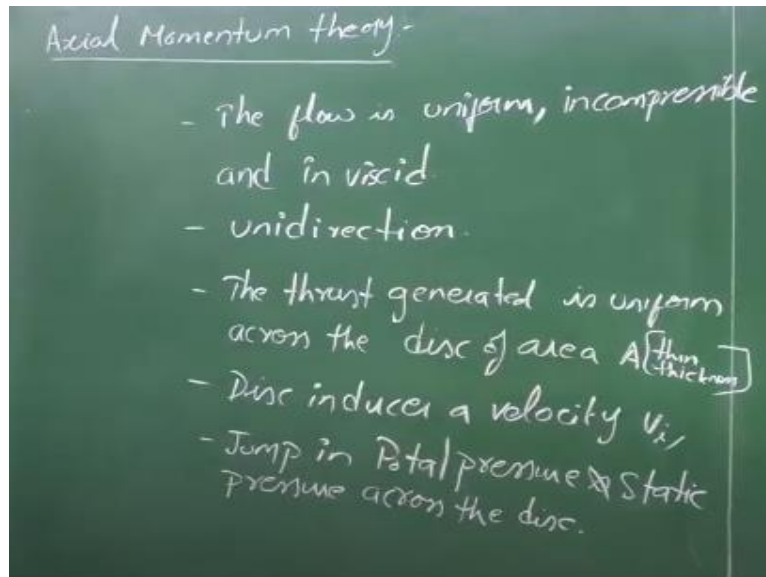 Axial Momentum theory-
- The flow is uniform, incompressible
and in viscid
- unidirection.
- The thrust generated is uniform
across the disc of area A [thin
thickness]
- Disc induces a velocity vi,
- Jump in Total pressure & Static
pressure across the disc.